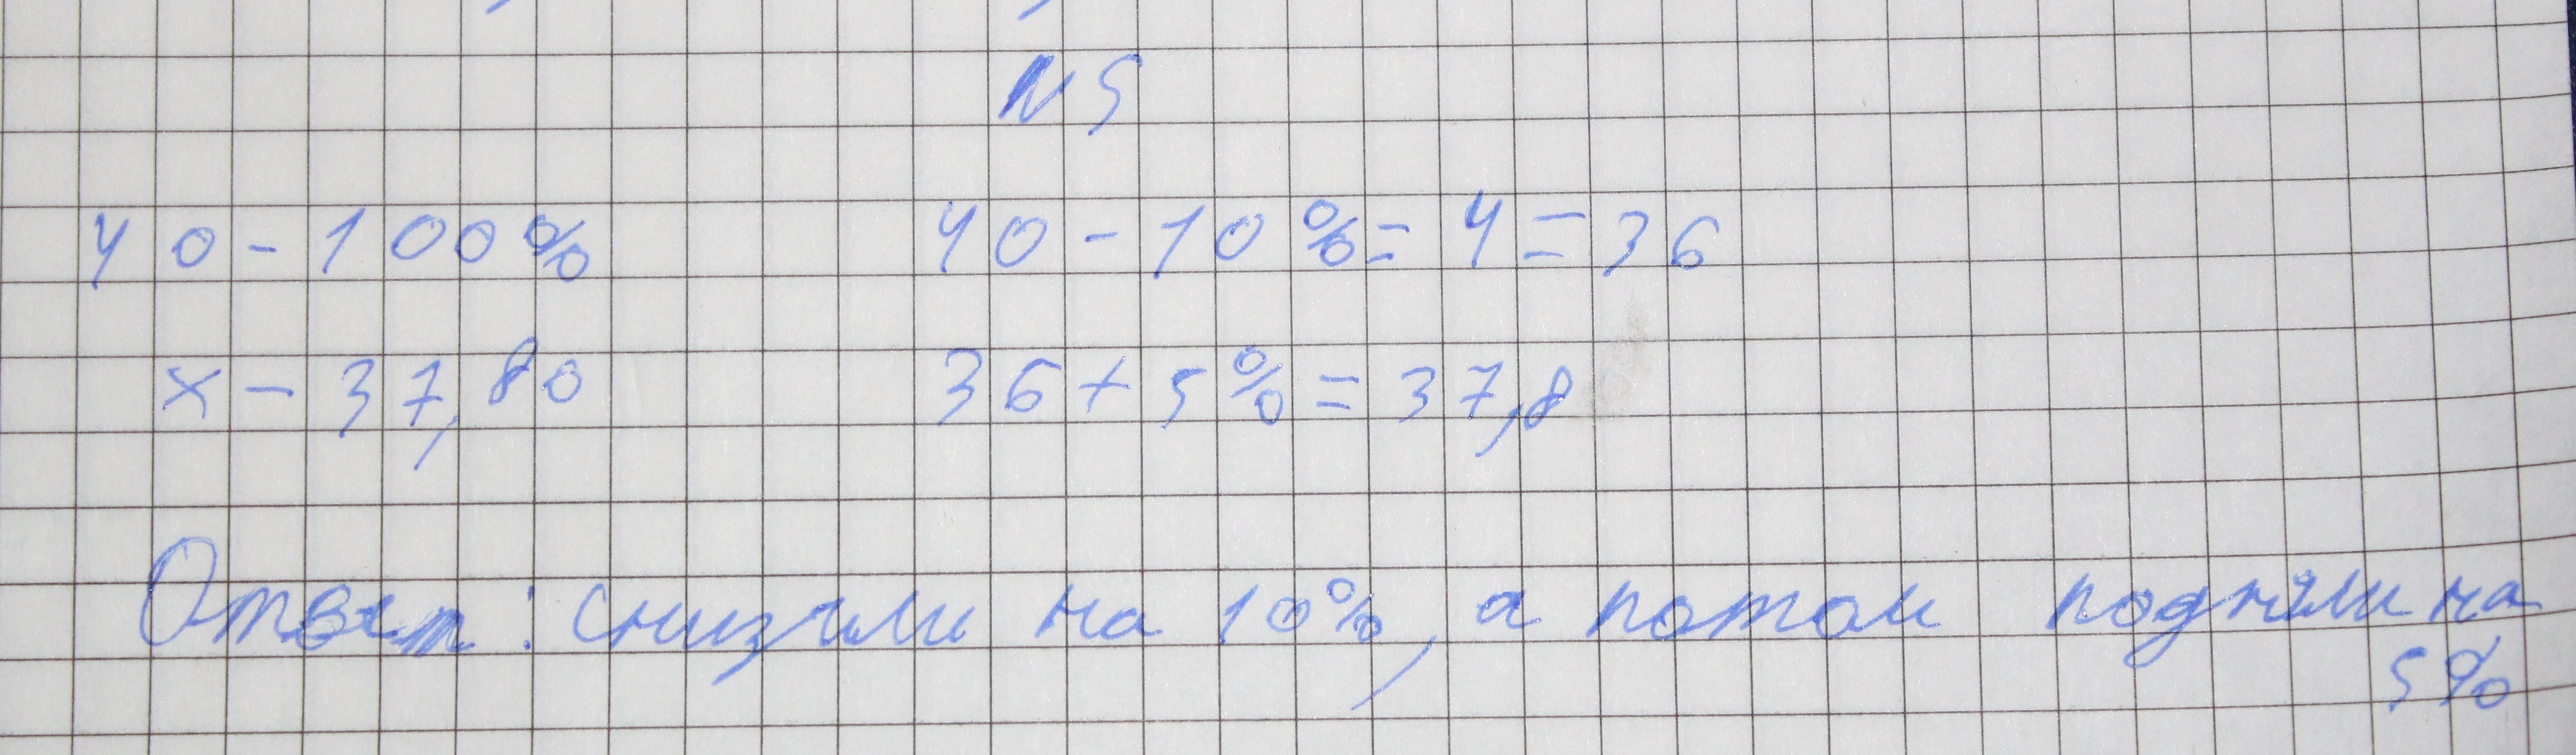 N 5
40 - 100%
40 - 10% = 4 = 36
x - 37,80
36 + 5% = 37,8
Ответ: снизили на 10%, а потом подняли на
5%